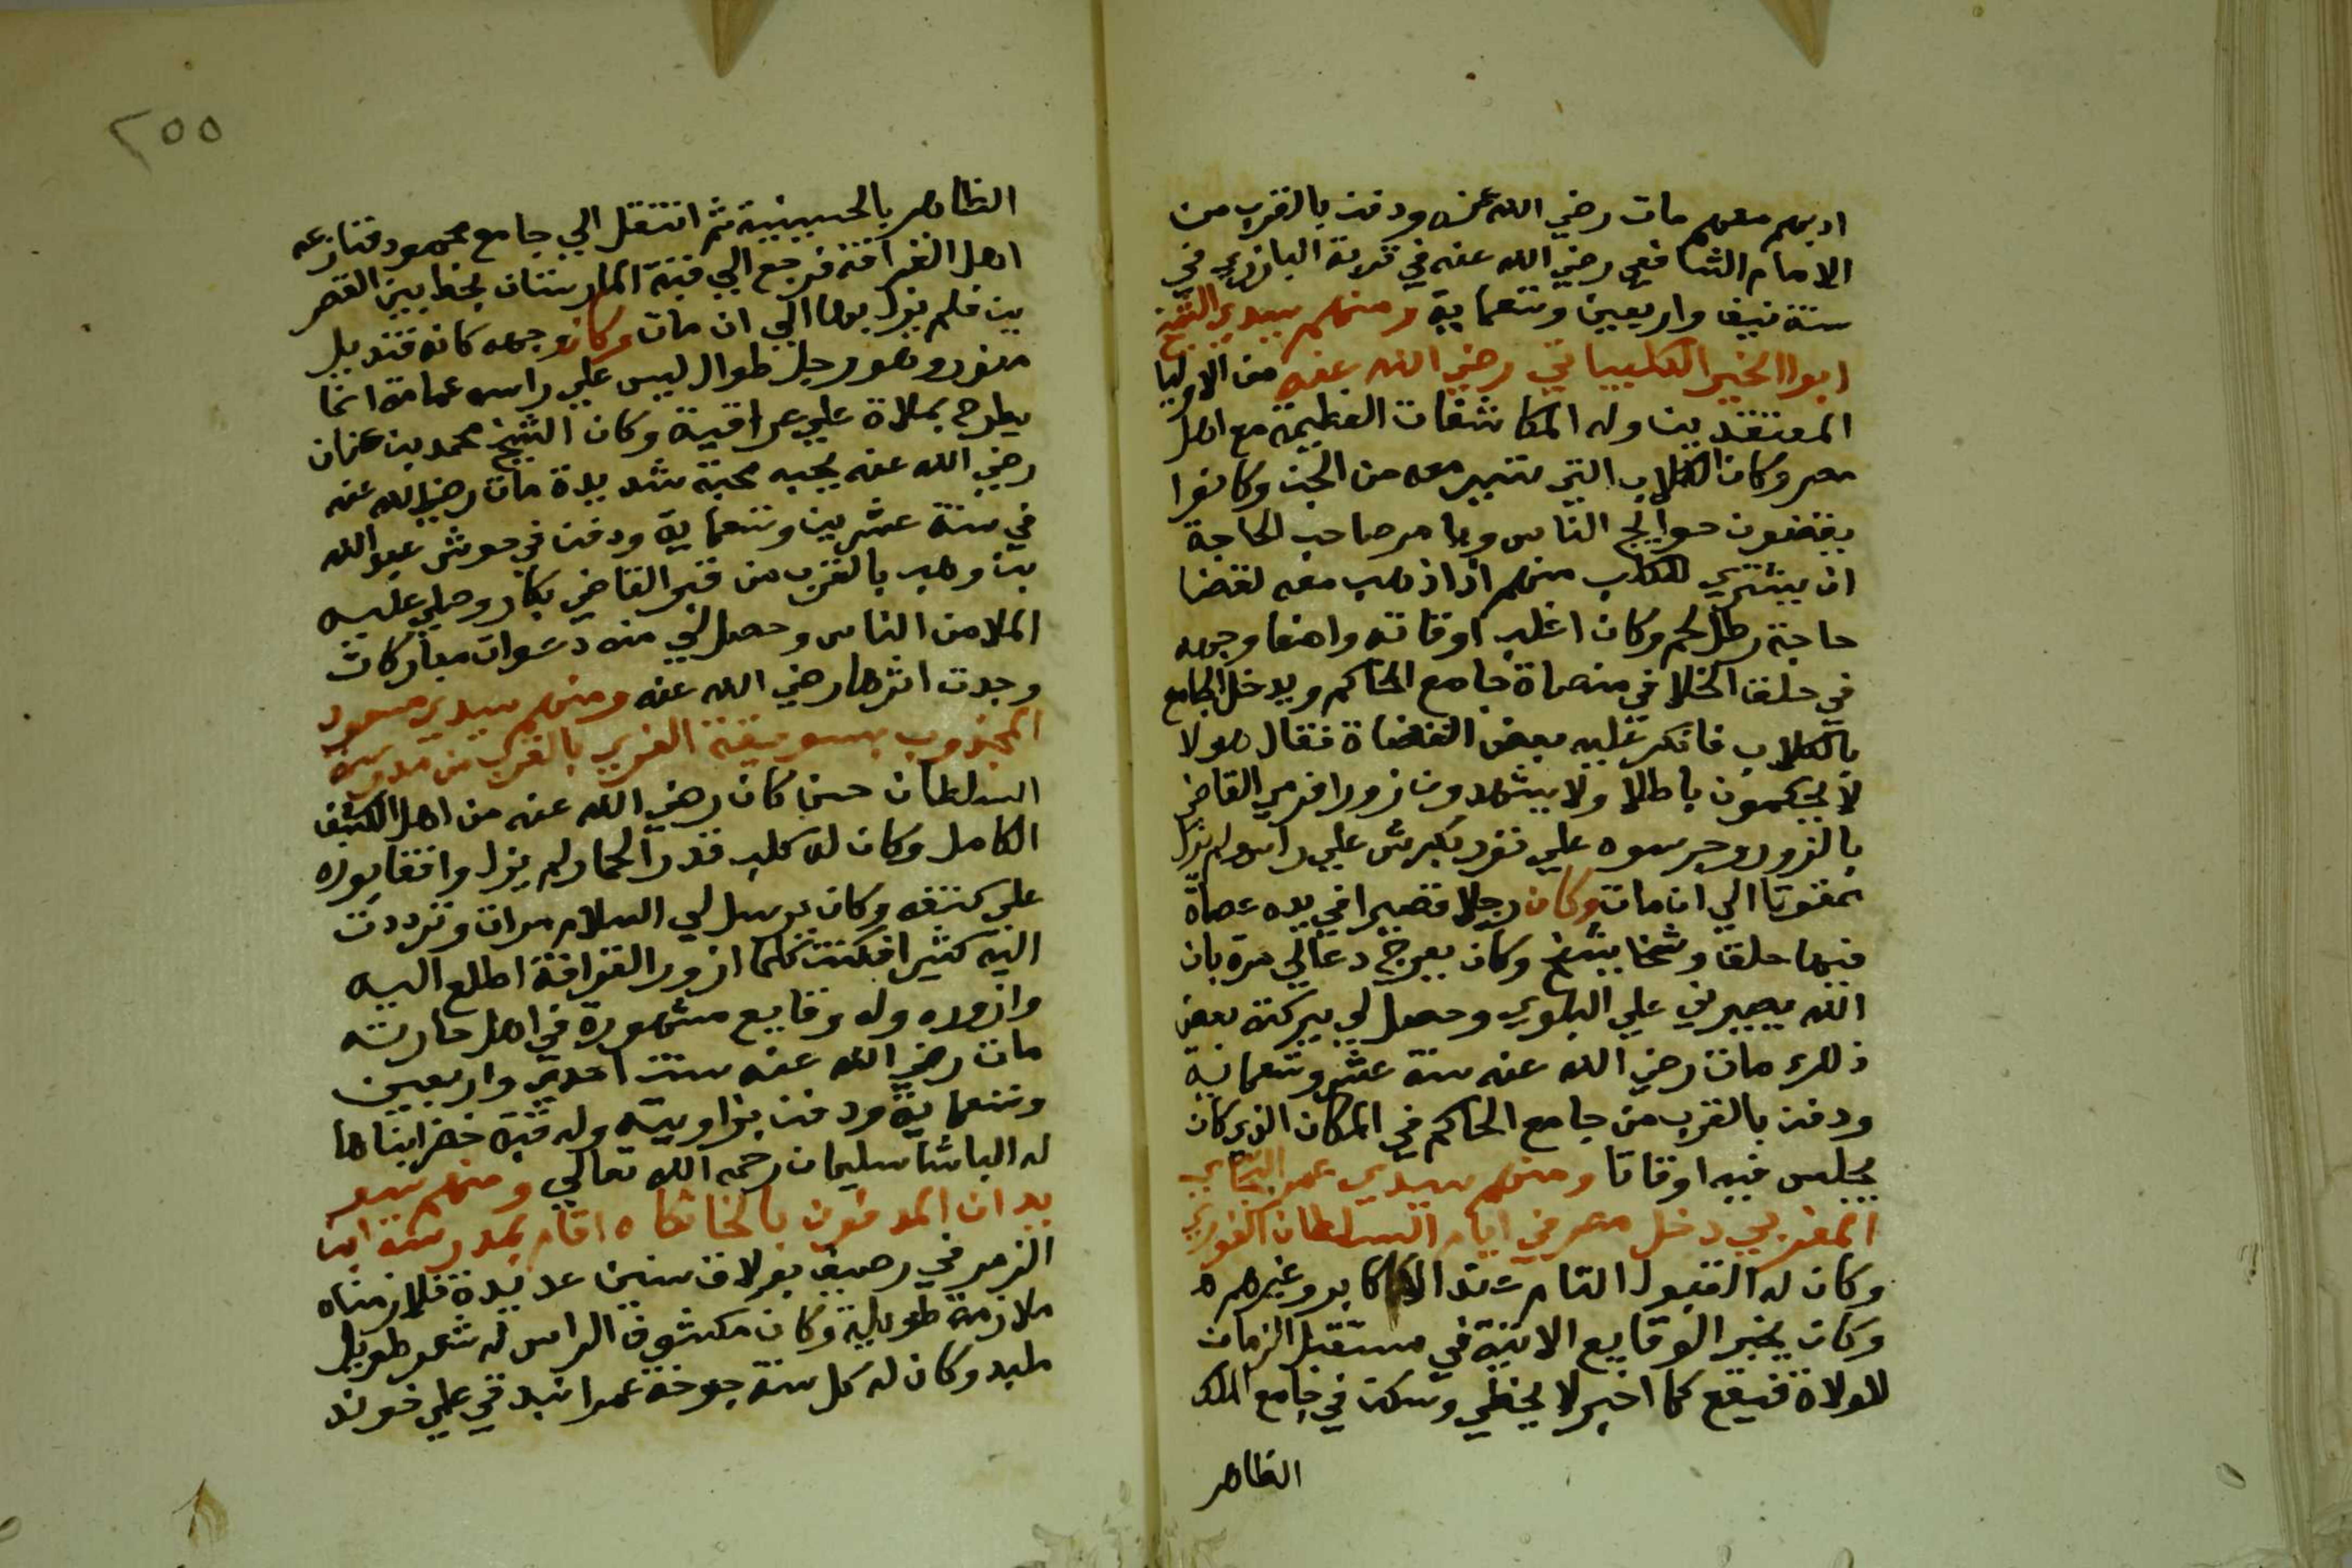 ادبهم معهم مات رضي الله عنه ودفن بالقرب من
الامام الشافعي رضي الله عنه في تربة البارزي في
سنة نيف واربعين وتسعماية ومنهم سيدي الشيخ
ابوا الخير الكليباتي رضي الله عنه من الاوليا
المعتقدين وله المكاشفات العظيمة مع اهل
مصر وكان الكلاب التي تسير معه من الجن وكانوا
يقضون حوايج الناس ويامر صاحب الحاجة
ان يشتري للكلب منهم اذا ذهب معه لقضا
حاجة رطل لحم وكان اغلب اوقاته واضعا وجهه
في حلق الخلا في ميضاة جامع الحاكم ويدخل الجامع
بالكلاب فانكر عليه بعض القضاة فقال هولا
لا يحكمون باطلا ولا يشهدون زورا فرمي القاضي
بالزور وجرسوه علي ثور بكرش علي راس ولم يزل
ممقوتا الي ان مات وكان رجلا قصيرا في يده عصاة
فيها حلق وشخاشيخ وكان يعرج دعالي مرة بان
الله يصبرني علي البلوي وحصل لي ببركته بعض
ذلك مات رضي الله عنه سنة عشر وتسعماية
ودفن بالقرب من جامع الحاكم في المكان الذي كان
يجلس فيه اوقاتا ومنهم سيدي عمر البجاي
المغربي دخل مصر في ايام السلطان الغوري
وكان له القبول التام عند الاكابر وغيرهم
وكان يخبر الوقايع الاتية في مستقبل الزمان
للولاة فيقع كما اخبر لا يخطي وسكن في جامع الملك
الظاهر
٢٥٥
الظاهر بالحسينية ثم انتقل الي جامع محمود فنازعه
اهل القرافة فرجع الي قبة المارستان بخط بين القصر
ين فلم يزل بها الي ان مات وكان وجهه كانه قنديل
منور وهو رجل طوال ليس علي راسه عمامة انما
يطرح بملاة علي عراقية وكان الشيخ محمد بن عنان
رضي الله عنه يحبه محبة شديدة مات رضي الله عنه
في سنة عشرين وتسعماية ودفن في حوش عبد الله
بن وهب بالقرب من قبر القاضي بكار وصلي عليه
الملا من الناس وحصل لي منه دعوات مباركات
وجدت اثرها رضي الله عنه ومنهم سيدي مسعود
المجذوب بسويقة العزي بالقرب من مدرسة
السلطان حسن كان رضي الله عنه من اهل الكشف
الكامل وكان له كلب قدر الحمار لم يزل واقفا بوزه
علي كتفه وكان يرسل لي السلام مرات وترددت
اليه كثيرا فكنت كلما ازور القرافة اطلع اليه
وازوره وله وقايع مشهورة في اهل حارته
مات رضي الله عنه سنة احدي واربعين
وتسعماية ودفن بزاويته وله قبة خضرا بناها
له الباشا سليمان رحمه الله تعالي ومنهم سيد
يدان المدفون بالخانكاه اقام بمدرسة ابن
الزمن في رصيف بولاق سنين عديدة فلازمناه
ملازمة طويلة وكان مكشوف الراس له شعر طويل
ملبد وكان له كل سنة جوخة عمرا عند علي خوند